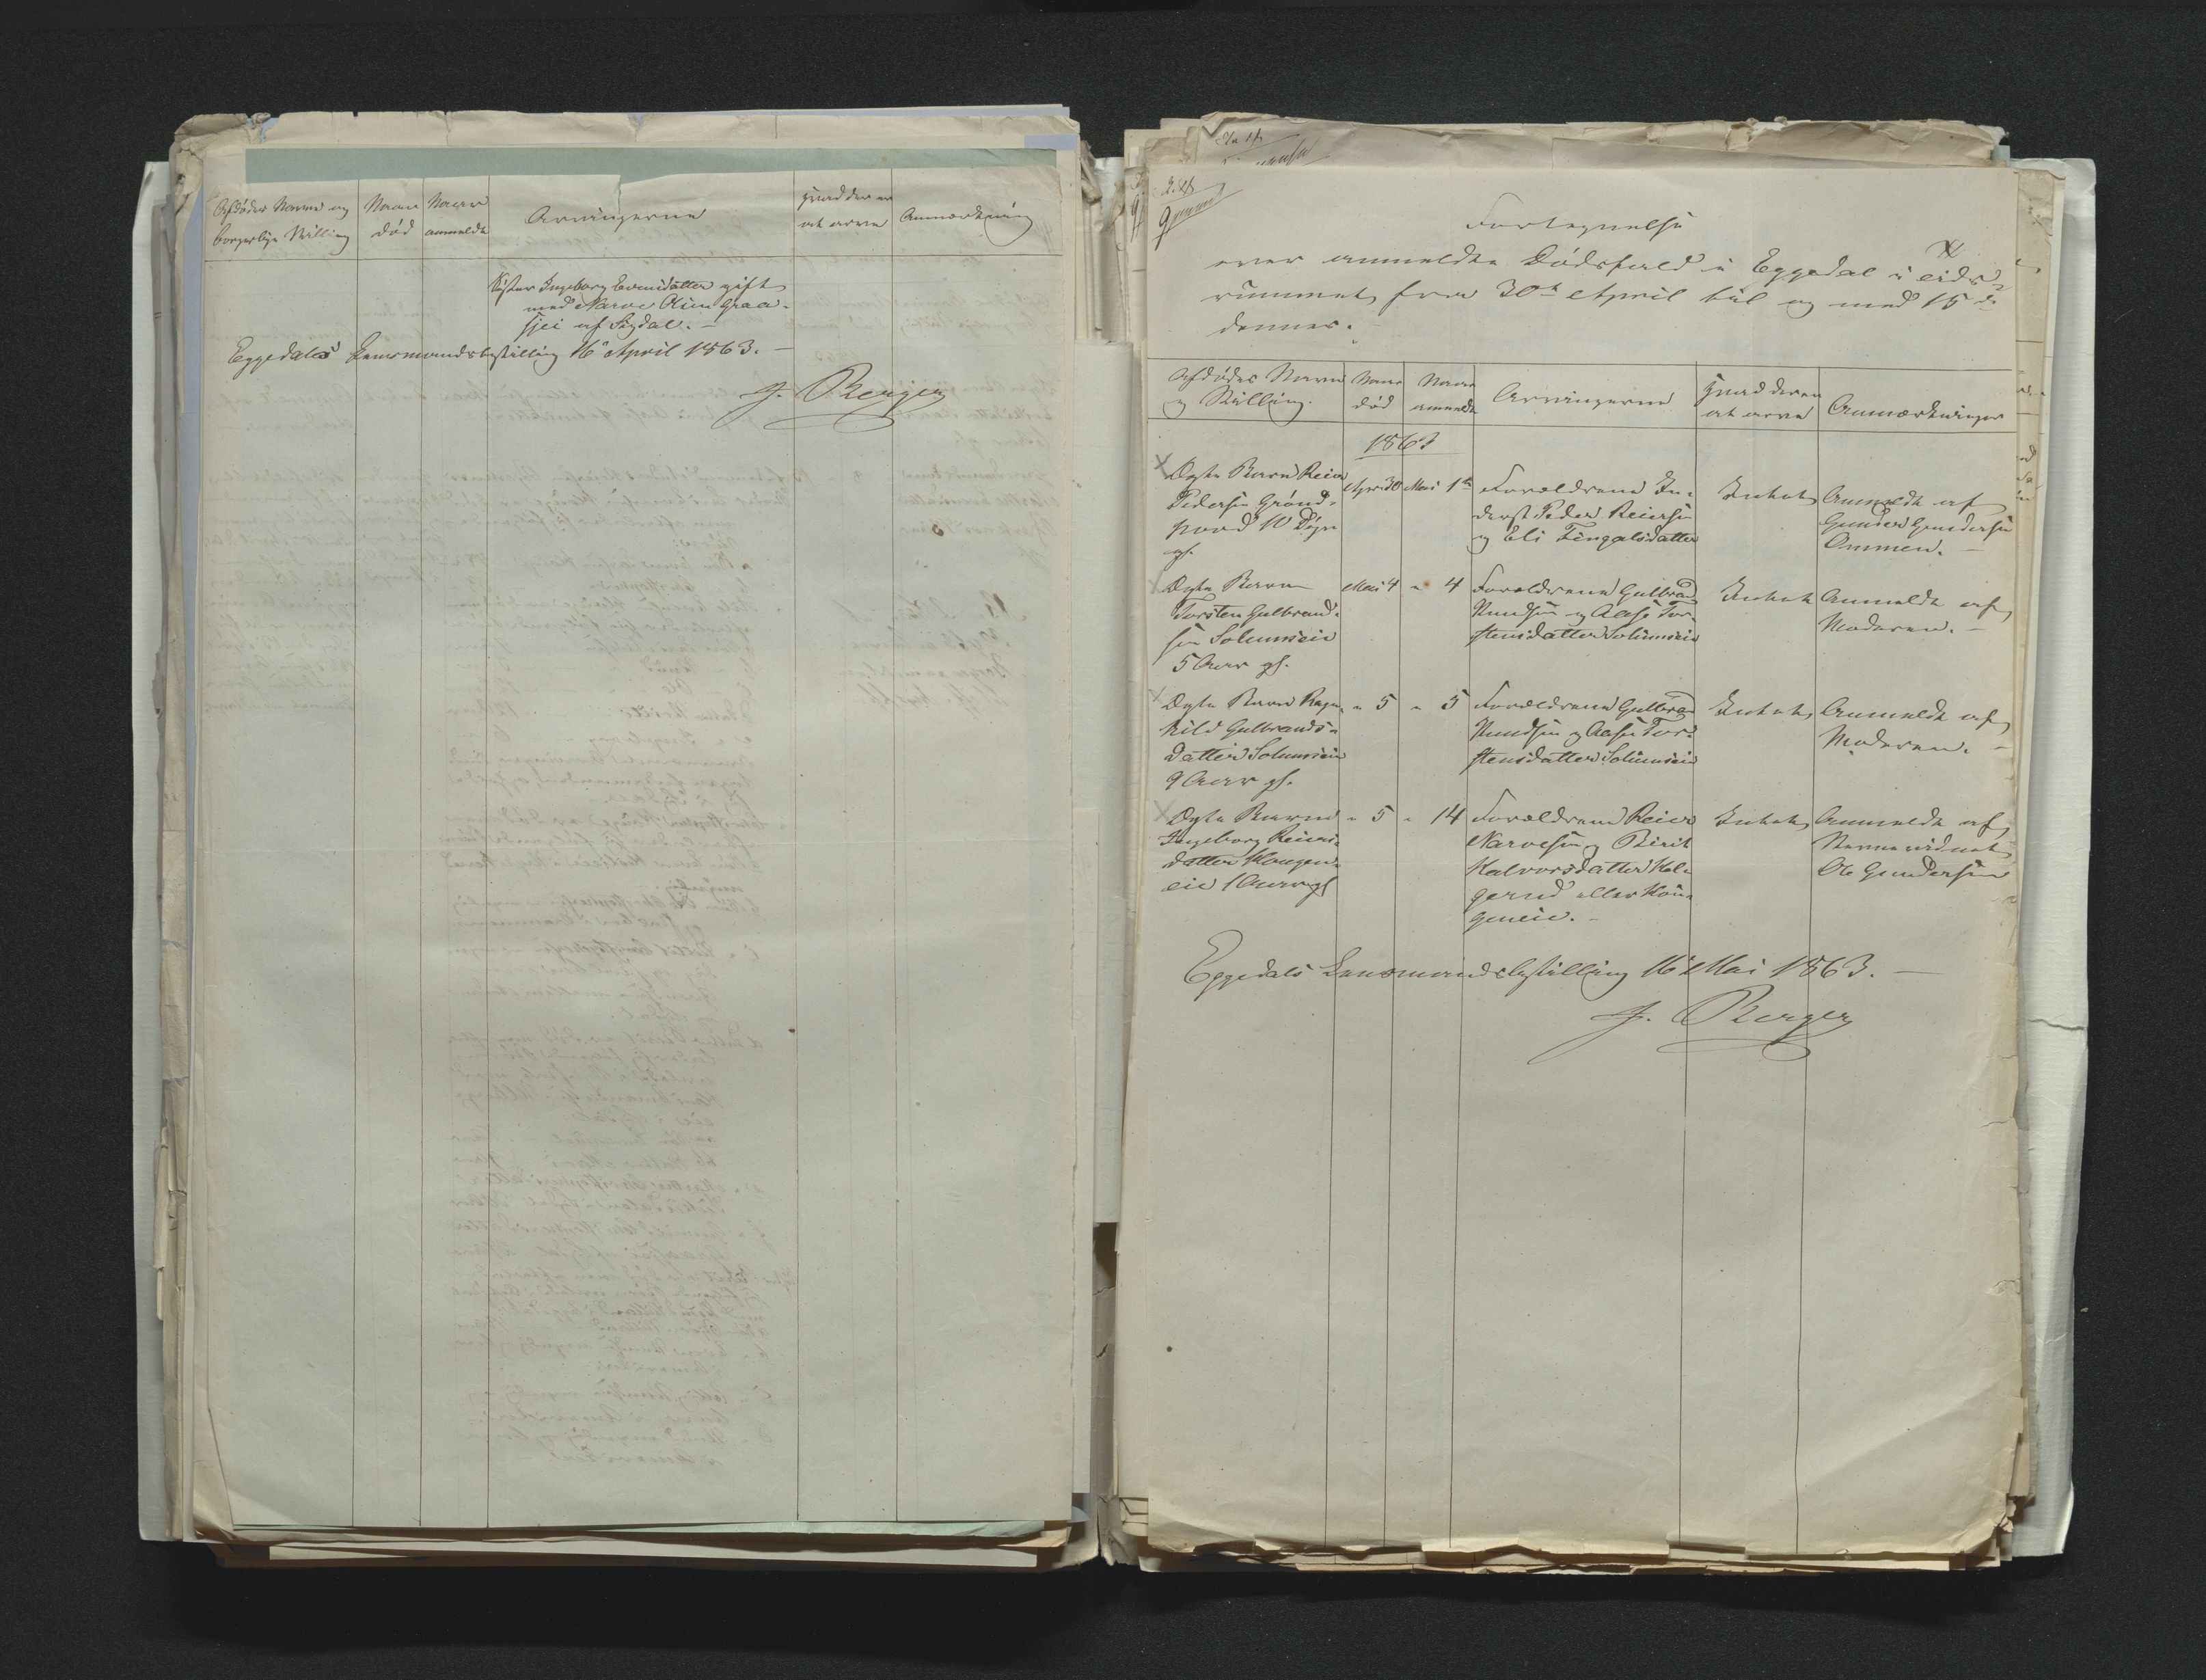 Afdødes Navn og
borgerlige Stilling
Naar
død
Naar
anmeldt
Arvingerne
Hvad der er
at arve
Anmærkning
Søster Ingeborg Evensdatter gift
med Narve Olsen Graa-
sjei af Sigdal. -
Eggedals Lensmandsbestilling 16 April 1863. -
J. Berger
Fortegnelse
over anmeldte Dødsfald i Eggedal i Tids-
rummet fra 30te April til og med 15 ds
dennes.
Afdødes Navn
og Stilling.
Naar
død
Naar
anmeldt
Arvingerne
Hvad der er
at arve
Anmærkninger
1863
Ægte Barn Reier
Pedersen Grønd-
hovd 10 Dage
gl.
April 30
Mai 1te
Forældrene In-
derst Peder Reiersen
og Eli Fingalsdatter
Intet
Anmeldt af
Gunder Gundersen
Ommen. -
Ægte Barn
Torsten Gulbrand-
sen Solumseie
5 Aar gl.
Mai 4
" 4
Forældrene Gulbrand
Knudsen og Aase Tor-
stensdatter Solumseie
Intet
Anmeldt af
Moderen. -
Ægte Barn Ragn-
hild Gulbrands-
datter Solumseie
9 Aar gl.
" 5
" 5
Forældrene Gulbrand
Knudsen og Aase Tor-
stensdatter Solumseie
Intet
Anmeldt af
Moderen. -
Ægte Barn
Ingeborg Reiers-
datter Kougen-
eie 1 Aar gl
" 5
" 14
Forældrene Reier
Narvesen og Birit
Halvorsdatter Hol-
gerud eller Kou-
geneie. -
Intet
Anmeldt af
Ole Gundersen
Eggedals Lensmandsbestilling 16 Mai 1863. -
J. Berger